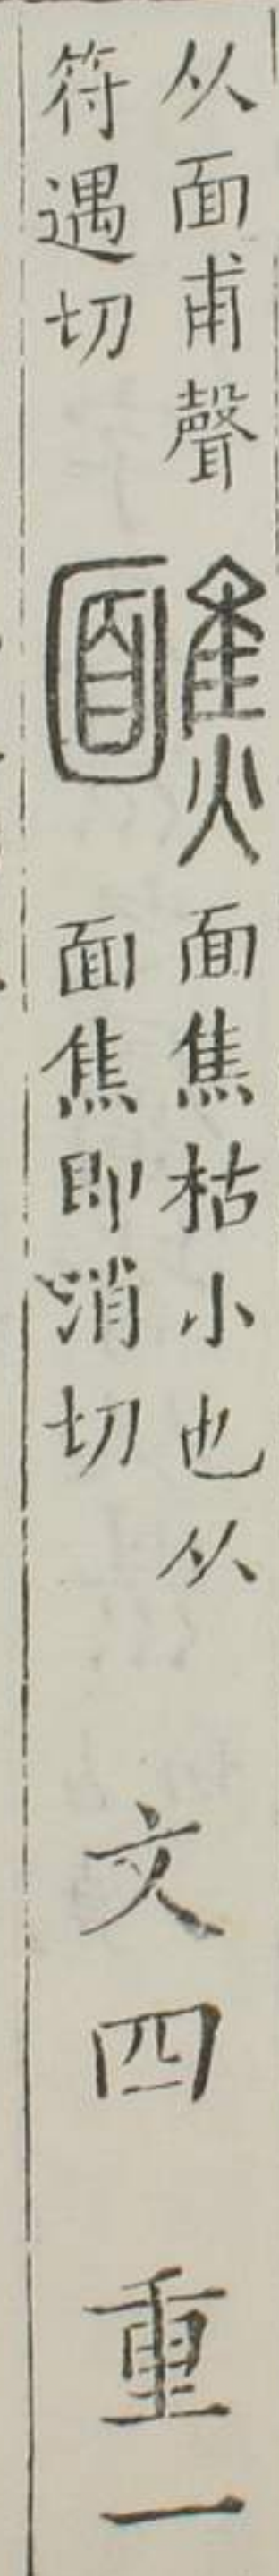 从面甫聲
符遇切
醮
面焦枯小也从
面焦即消切
文四
重一